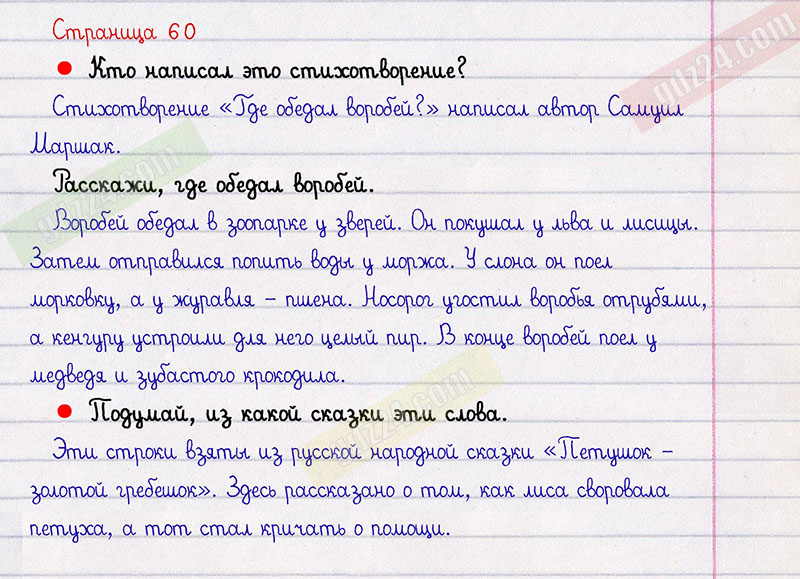 Страница 60
• Кто написал это стихотворение?
Стихотворение «Где обедал воробей?» написал автор Самуил
Маршак.
Расскажи, где обедал воробей.
Воробей обедал в зоопарке у зверей. Он покушал у льва и лисицы.
Затем отправился попить воды у моржа. У слона он поел
морковку, а у журавля – пшена. Носорог угостил воробья отрубями,
а кенгуру устроили для него целый пир. В конце воробей поел у
медведя и зубастого крокодила.
• Подумай, из какой сказки эти слова.
Эти строки взяты из русской народной сказки «Петушок –
золотой гребешок». Здесь рассказано о том, как лиса своровала
петуха, а тот стал кричать о помощи.
gdz24.com
gdz24.com
gdz24.com